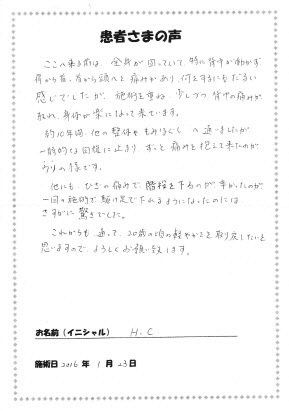 患者さまの声
ここへ来る前は、全身が固っていて、特に背中が動かず
肩から首、首から頭へと痛みがあり、何をするにもだるい
感じでしたが、施術を重ね、少しづつ背中の痛みが
取れ、身体が楽になって来ています。
約10年間、他の整体やもみほぐしへ通いましたが
一般的な回復に止まり、ずっと痛みを抱えて来たのが
うその様です。
他にも、ひざの痛みで階段を下るのが辛かったのが
一回の施術で駆け足で下れるようになったのには
さすがに驚きでした。
これからも通って、20歳の頃の軽やかさを取り戻したいと
思いますので、よろしくお願い致します。
お名前(イニシャル) H.C.
施術日 2016 年 1 月 23 日